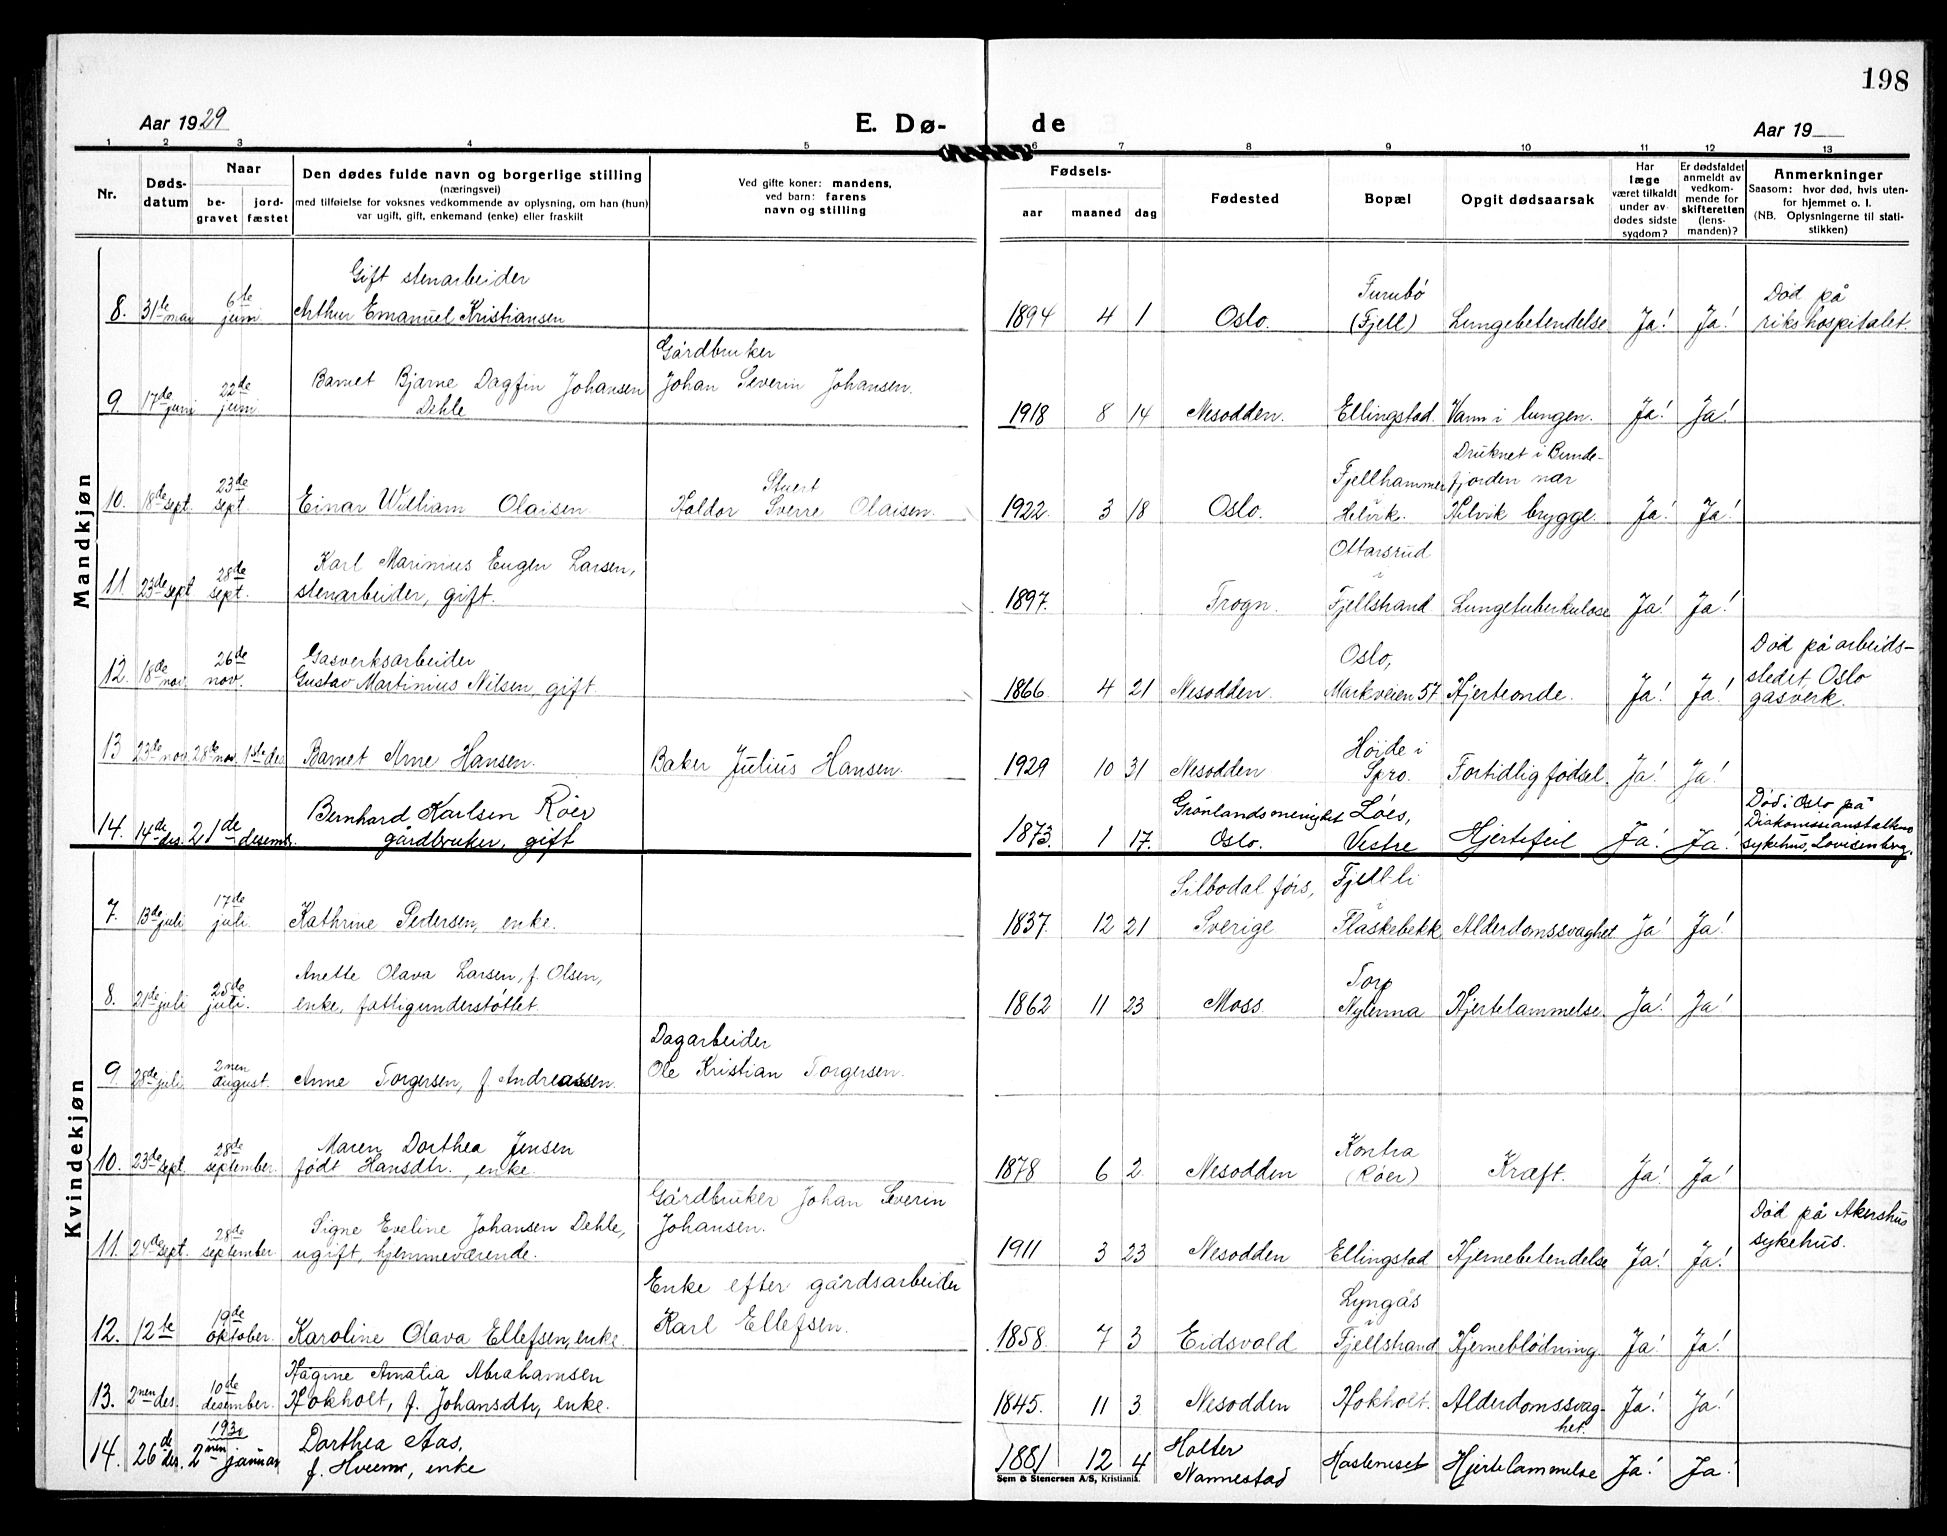 198
Aar 1929
E. Dø-
de
Aar 19
1 2 3 4 5 6 7 8 9 10 11 12 13
Nr.
Døds-
datum
Naar
be-
gravet
jord-
fæstet
Den dødes fulde navn og borgerlige stilling
(næringsvei)
med tilføielse for voksnes vedkommende av oplysning, om han (hun)
var ugift, gift, enkemand (enke) eller fraskilt
Ved gifte koner: mandens,
ved barn: farens
navn og stilling
Fødsels-
aar
maaned
dag
Fødested
Bopæl
Opgit dødsaarsak
Har
læge
været tilkaldt
under av-
dødes sidste
sygdom?
Er dødsfaldet
anmeldt av
vedkom-
mende for
skifteretten
(lens-
manden)?
Anmerkninger
Saasom: hvor død, hvis uten-
for hjemmet o. l.
(NB. Oplysningerne til stati-
stikken)
Mandkjøn
8. 31te mai 6te juni
Gift stenarbeider
Arthur Emanuel Kristiansen
1894 4 1 Oslo.
Furubö
(Fjell)
Lungebetendelse Ja! Ja!
Död på
rikshospitalet.
9. 17de juni 22de juni
Barnet Bjarne Dagfin Johansen
Dehle
Gårdbruker
Johan Severin Johansen.
1918 8 14 Nesodden. Ellingstad. Vann i lungen. Ja! Ja!
10. 18de sept. 23de sept.
Einar William Olaisen.
Stuert
Haldor Sverre Olaisen.
1922. 3 18 Oslo.
Fjellhammer
Helvik.
Druknet i Bunde-
fjorden nær
Helvik brygge. Ja! Ja!
11. 23de sept 28de sept.
Karl Marinius Eugen Larsen,
stenarbeider, gift.
1897. Frogn.
Ottarsrud
i
Fjellstrand
Lungetuberkulose Ja! Ja!
12. 18de nov. 26de nov.
Gasverksarbeider
Gustav Martinius Nilsen, gift.
1866 4 21 Nesodden.
Oslo,
Markveien 57
Hjerteonde. Ja! Ja!
Död på arbeids-
stedet, Oslo
gasverk.
13 23de nov. 28de nov. 1ste des.
Barnet Arne Hansen.
Baker Julius Hansen.
1929 10 31 Nesodden
Höide i
Spro.
Fortidlig födsel. Ja! Ja!
14. 14de des. 21de desemb.
Bernhard Karlsen Röer
gårdbruker, gift
1873. 1 17.
Grönlands menighet
Oslo.
Löes,
Vestre
Hjertefeil Ja! Ja!
Död i Oslo på
Diakonissianstaltens
sykehus, Lovisenberg.
Kvindekjøn
7. 13de juli 17de juli.
Kathrine Pedersen, enke.
1837. 12 21
Silbodal förs,
Sverige
Fjell-li
Flaskebekk
Alderdomssvaghet. Ja! Ja!
8. 21de juli 25de juli.
Anette Olava Larsen, f. Olsen,
enke, fattigunderstöttet.
1862 11 23 Moss.
Torp
Nylenna
Hjertelammelse. Ja! Ja!
9. 28de juli. 2nen august.
Anne Torgersen, f. Andreassen.
Dagarbeider
Ole Kristian Torgersen.
10. 23de sept. 28de september.
Maren Dorthea Jensen
födt Hansdtr., enke.
1878 6 2. Nesodden
Kontra
(Röer)
Kræft. Ja! Ja!
11. 24de sept. 28de september.
Signe Eveline Johansen Dehle,
ugift, hjemmeværende.
Gårdbruker Johan Severin
Johansen.
1911 3 23 Nesodden Ellingstad Hjernebetendelse Ja! Ja!
Död på Akershus
sykehus.
12. 12te 19de oktober.
Karoline Olava Ellefsen, enke.
Enke efter gårdsarbeider
Karl Ellefsen.
1858. 7 3 Eidsvold
Lyngås
i
Fjellstrand
Hjerneblödning. Ja! Ja!
13. 2nen des. 10de desember.
Hågine Amalia Abrahamsen
Hokholt, f. Johansdtr, enke.
1845. 11 3. Nesodden Hokholt. Alderdomssvag-
het. Ja! Ja!
14. 26de des. 1930 2nen januar
Dorthea Aas,
f. Hveem, enke
1881 12 4
Holter
Nannestad
Hasleneset Hjertelammelse Ja! Ja!
Sem & Stenersen A/S, Kristiania.